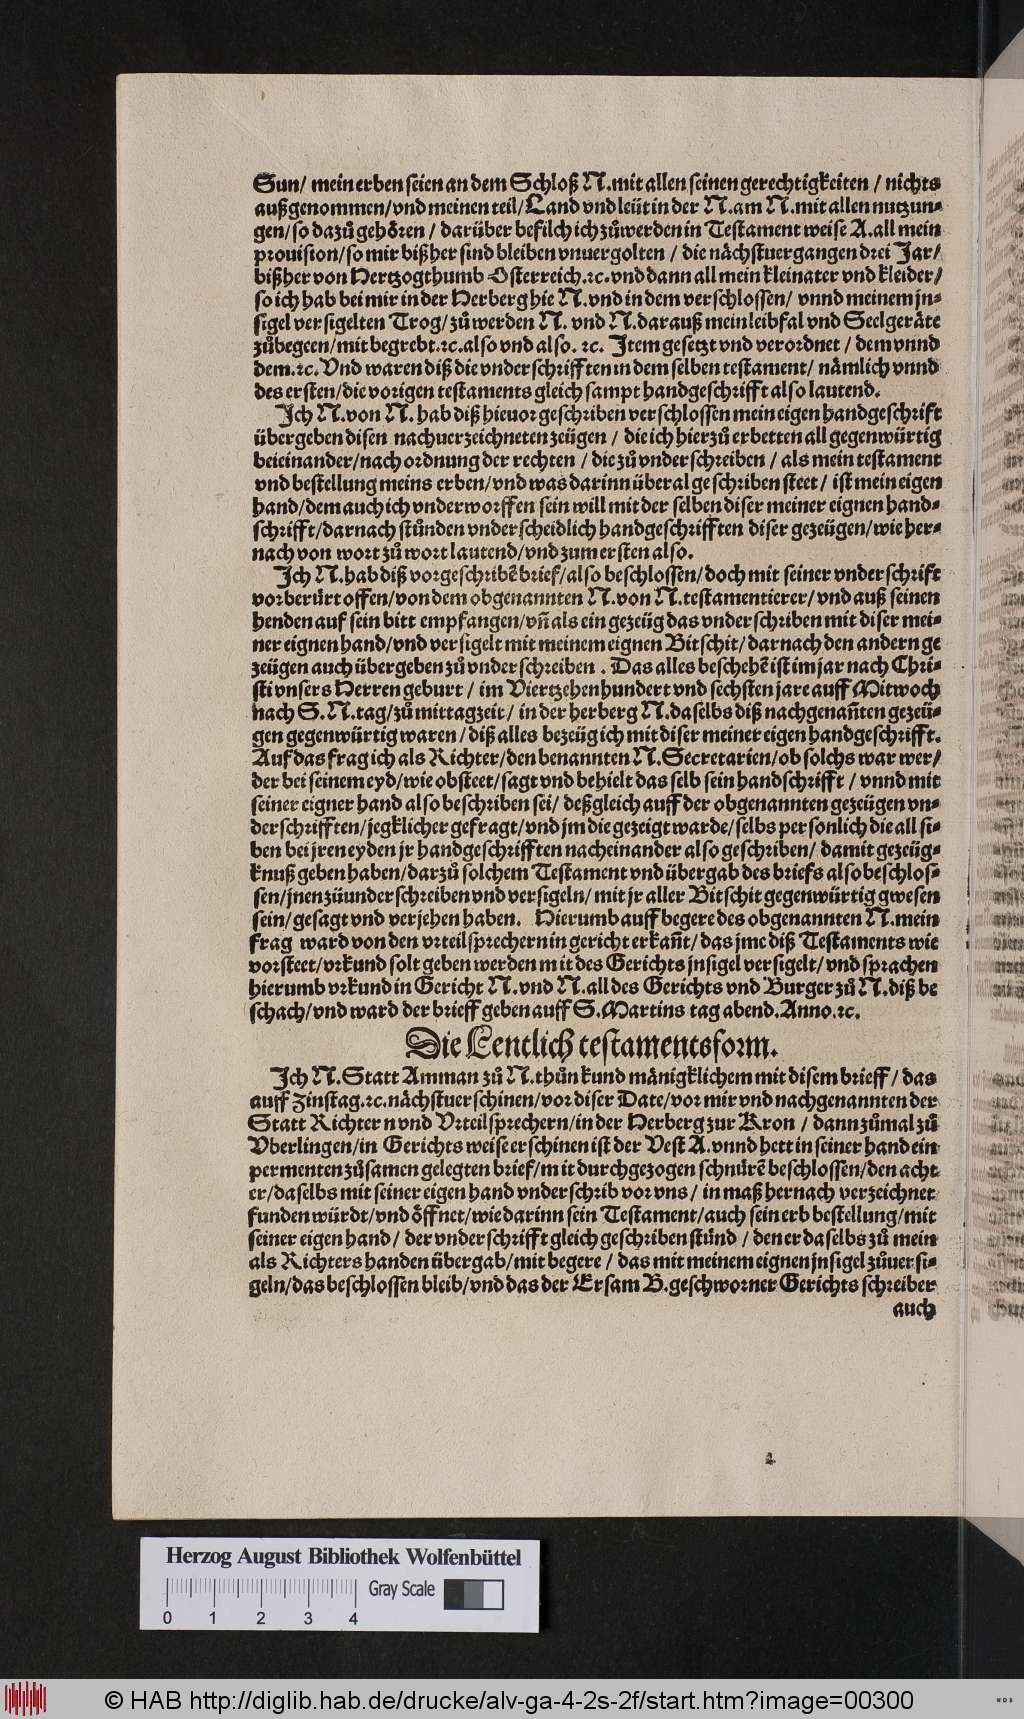 Sun/ mein erben seien an dem Schloß N. mit allen seinen gerechtigkeiten / nichts
außgenommen/vnd meinen teil/Land vnd leüt in der N. am N. mit allen nutzun⸗
gen/so dazů gehören / darüber befilch ich zůwerden in Testament weise A. all mein
prouision/so mir bißher sind bleiben vnuergolten / die nächstuergangen drei Jar/
bißher von Hertzogthumb Osterreich.⁊c. vnd dann all mein kleinater vnd kleider/
so ich hab bei mir in der Herberg hie N. vnd in dem verschlossen/ vnnd meinem jn⸗
sigel versigelten Trog/ zů werden N. vnd N. darauß mein leibfal vnd Seelgeräte
zůbegeen/mit begrebt.⁊c. also vnd also. ⁊c. Item gesetzt vnd verordnet / dem vnnd
dem.⁊c. Vnd waren diß die vnderschrifften in dem selben testament/ nämlich vnnd
des ersten/die vorigen testaments gleich sampt handgeschrifft also lautend.
Ich N. von N. hab diß hieuor geschriben verschlossen mein eigen handgeschrift
übergeben disen nachuerzeichneten zeügen / die ich hierzů erbetten all gegenwürtig
beieinander/nach ordnung der rechten / die zů vnderschreiben / als mein testament
vnd bestellung meins erben/vnd was darinn überal geschriben steet / ist mein eigen
hand/dem auch ich vnderworffen sein will mit der selben diser meiner eignen hand⸗
schrifft/darnach stůnden vnderscheidlich handgeschrifften diser gezeügen/wie her⸗
nach von wort zů wort lautend/vnd zum ersten also.
Ich N. hab diß vorgeschribē brief/also beschlossen/doch mit seiner vnderschrift
vorberürt offen/von dem obgenannten N. von N. testamentierer/ vnd auß seinen
henden auf sein bitt empfangen/vn̄ als ein gezeüg das vnderschriben mit diser mei⸗
ner eignen hand/vnd versigelt mit meinem eignen Bitschit/darnach den andern ge
zeügen auch übergeben zů vnderschreiben . Das alles beschehē ist im jar nach Chri⸗
sti vnsers Herren geburt / im Viertzehenhundert vnd sechsten jare auff Mitwoch
nach S. N. tag/zů mittagzeit/ in der herberg N. daselbs diß nachgenan̄ten gezeü⸗
gen gegenwürtig waren/ diß alles bezeüg ich mit diser meiner eigen handgeschrifft.
Auf das frag ich als Richter/den benannten N. Secretarien/ob solchs war wer/
der bei seinem eyd/wie obsteet/sagt vnd behielt das selb sein handschrifft / vnnd mit
seiner eigner hand also beschriben sei/ deßgleich auff der obgenannten gezeügen vn⸗
derschrifften/jegklicher gefragt/vnd jm die gezeigt warde/selbs personlich die all si⸗
ben bei jren eyden jr handgeschrifften nacheinander also geschriben/ damit gezeüg⸗
knuß geben haben/darzů solchem Testament vnd übergab des briefs also beschlos⸗
sen/jnen zůunderschreiben vnd versigeln/ mit jr aller Bitschit gegenwürtig gwesen
sein/gesagt vnd verjehen haben. Hierumb auff begere des obgenannten N. mein
frag ward von den vrteilsprechern in gericht erkan̄t/das jme diß Testaments wie
vorsteet/vrkund solt geben werden mit des Gerichts jnsigel versigelt/vnd sprachen
hierumb vrkund in Gericht N. vnd N. all des Gerichts vnd Burger zů N. diß be
schach/vnd ward der brieff geben auff S. Martins tag abend. Anno.⁊c.
Die Lentlich testamentsform.
Ich N. Statt Amman zů N. thůn kund mänigklichem mit disem brieff / das
auff Zinstag.⁊c. nächstuerschinen/vor diser Date/vor mir vnd nachgenannten der
Statt Richtern vnd Vrteilsprechern/in der Herberg zur Kron / dann zůmal zů
Vberlingen/in Gerichts weise erschinen ist der Vest A. vnnd hett in seiner hand ein
permenten zůsamen gelegten brief/mit durchgezogen schnürē beschlossen/den acht
er/daselbs mit seiner eigen hand vnderschrib vor vns / in maß hernach verzeichnet
funden würdt/vnd öffnet/wie darinn sein Testament/auch sein erb bestellung/mit
seiner eigen hand / der vnderschrifft gleich geschriben stůnd / den er daselbs zů mein
als Richters handen übergab/mit begere / das mit meinem eignen jnsigel zůuersi⸗
geln/das beschlossen bleib/vnd das der Ersam B. geschworner Gerichtsschreiber
auch
Herzog August Bibliothek Wolfenbüttel
Gray Scale
0 1 2 3 4
© HAB http://diglib.hab.de/drucke/alv-ga-4-2s-2f/start.htm?image=00300